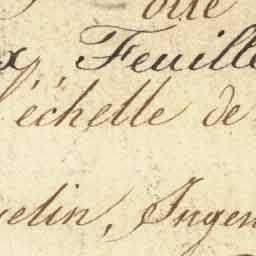 x Feuille
l'échelle de
velin, Ingen